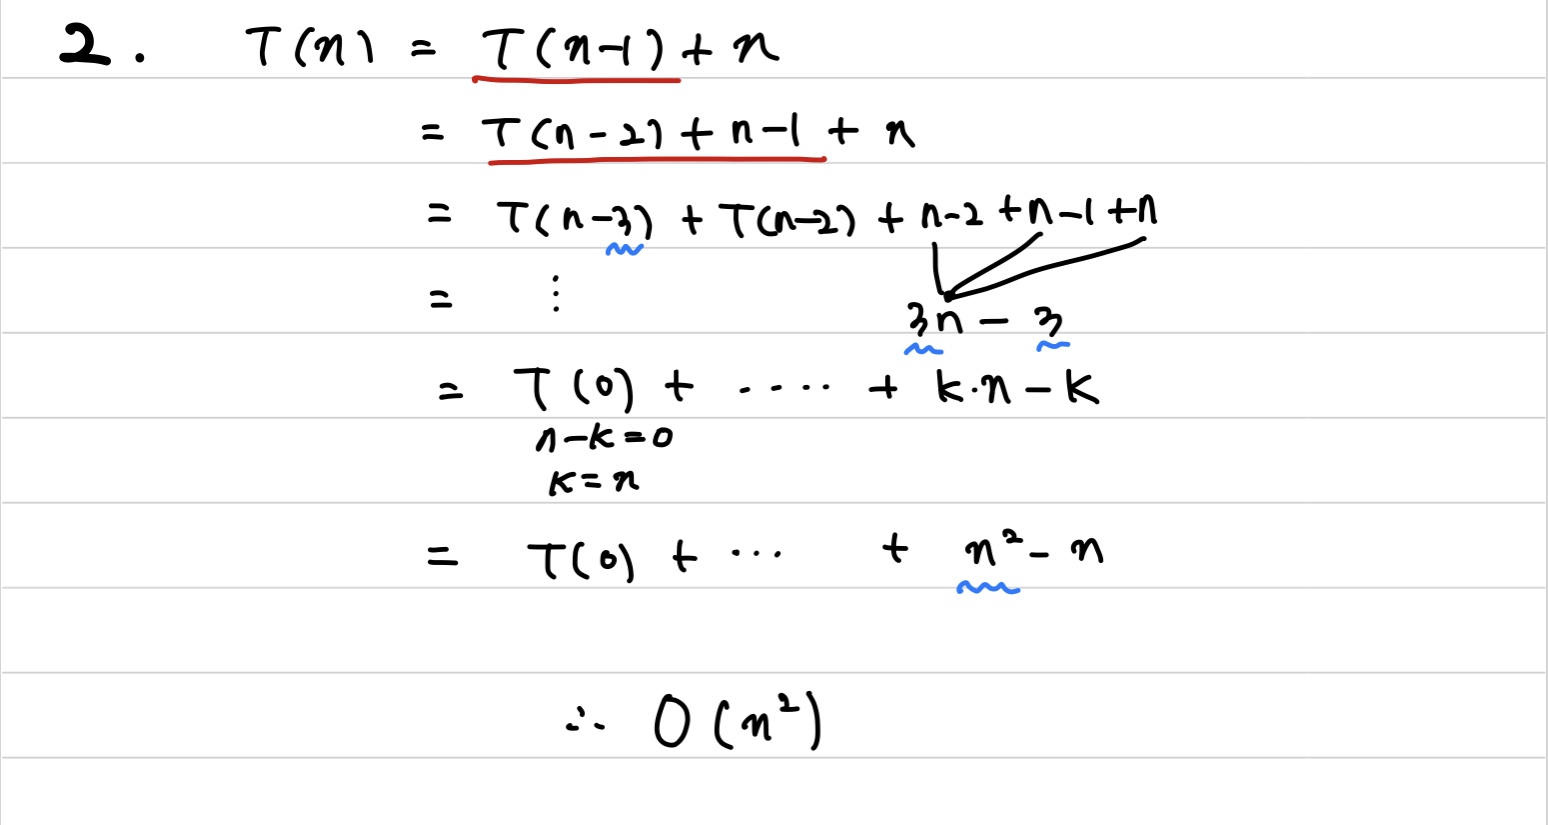 2. T(n) = T(n-1) + n
= T(n-2) + n-1 + n
= T(n-3) + T(n-2) + n-2 + n-1 + n
= ⋮
3n - 3
= T(0) + ····· + k·n - k
n-k=0
k=n
= T(0) + ··· + n² - n
∴ O(n²)